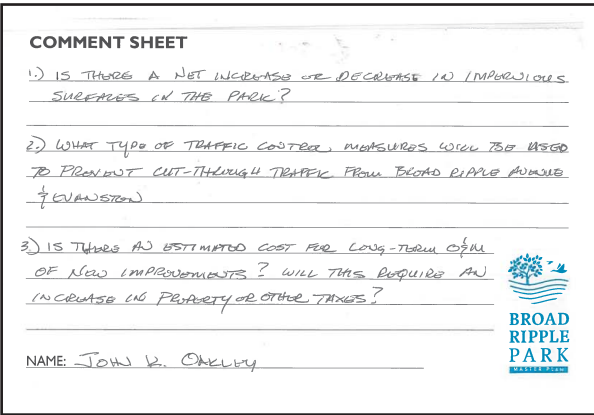 COMMENT SHEET
1.) IS THERE A NET INCREASE OR DECREASE IN IMPERVIOUS
SURFACES IN THE PARK?
2.) WHAT TYPE OF TRAFFIC CONTROL MEASURES WILL BE USED
TO PREVENT CUT-THROUGH TRAFFIC FROM BROAD RIPPLE AVENUE
& EVANSTON
3.) IS THERE AN ESTIMATED COST FOR LONG-TERM O&M
OF NEW IMPROVEMENTS? WILL THIS REQUIRE AN
INCREASE IN PROPERTY OR OTHER TAXES?
BROAD
RIPPLE
PARK
MASTER PLAN
NAME: JOHN K. OAKLEY